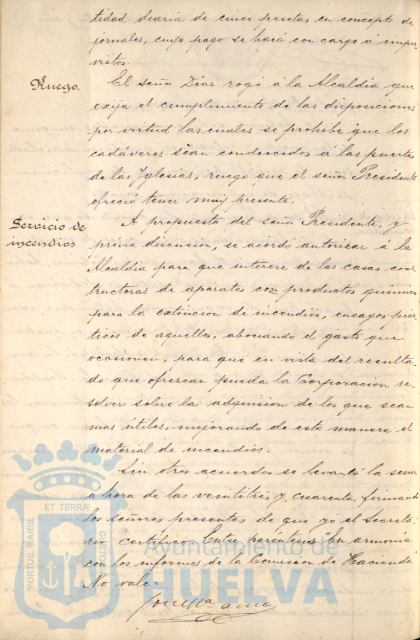 tidad diaria de cinco pesetas en concepto de
jornales, cuyo pago se hará con cargo á impre-
vistos.
Ruego.
El señor Díaz rogó á la Alcaldía que
exija el cumplimiento de las disposiciones
por virtud las cuales se prohibe que los
cadáveres sean conducidos á las puertas
de las Iglesias, ruego que el señor Presidente
ofreció tener muy presente.
Servicio de
incendios
A propuesta del señor Presidente, y
prévia discusion, se acordó autorizar á la
Alcaldía para que interese de las casas cons-
tructoras de aparatos con productos químicos
para la extincion de incendios, ensayos prác-
ticos de aquellos, abonando el gasto que
ocasionen, para que en vista del resulta-
do que ofrezcan pueda la Corporacion re-
solver sobre la adquision de los que sean
mas útiles, mejorando de esta manera el
material de incendios.
Sin otros acuerdos se levantó la sesion
a hora de las veintitres y cuarenta, firmando
los señores presentes de que yo el Secreta-
rio certifico. Entre parentesis = en armonia
con los informes de la Comision de Hacienda
No vale=
PORTUS MARIS
ET TERRÆ
CUSTODIA
Ayuntamiento de
HUELVA